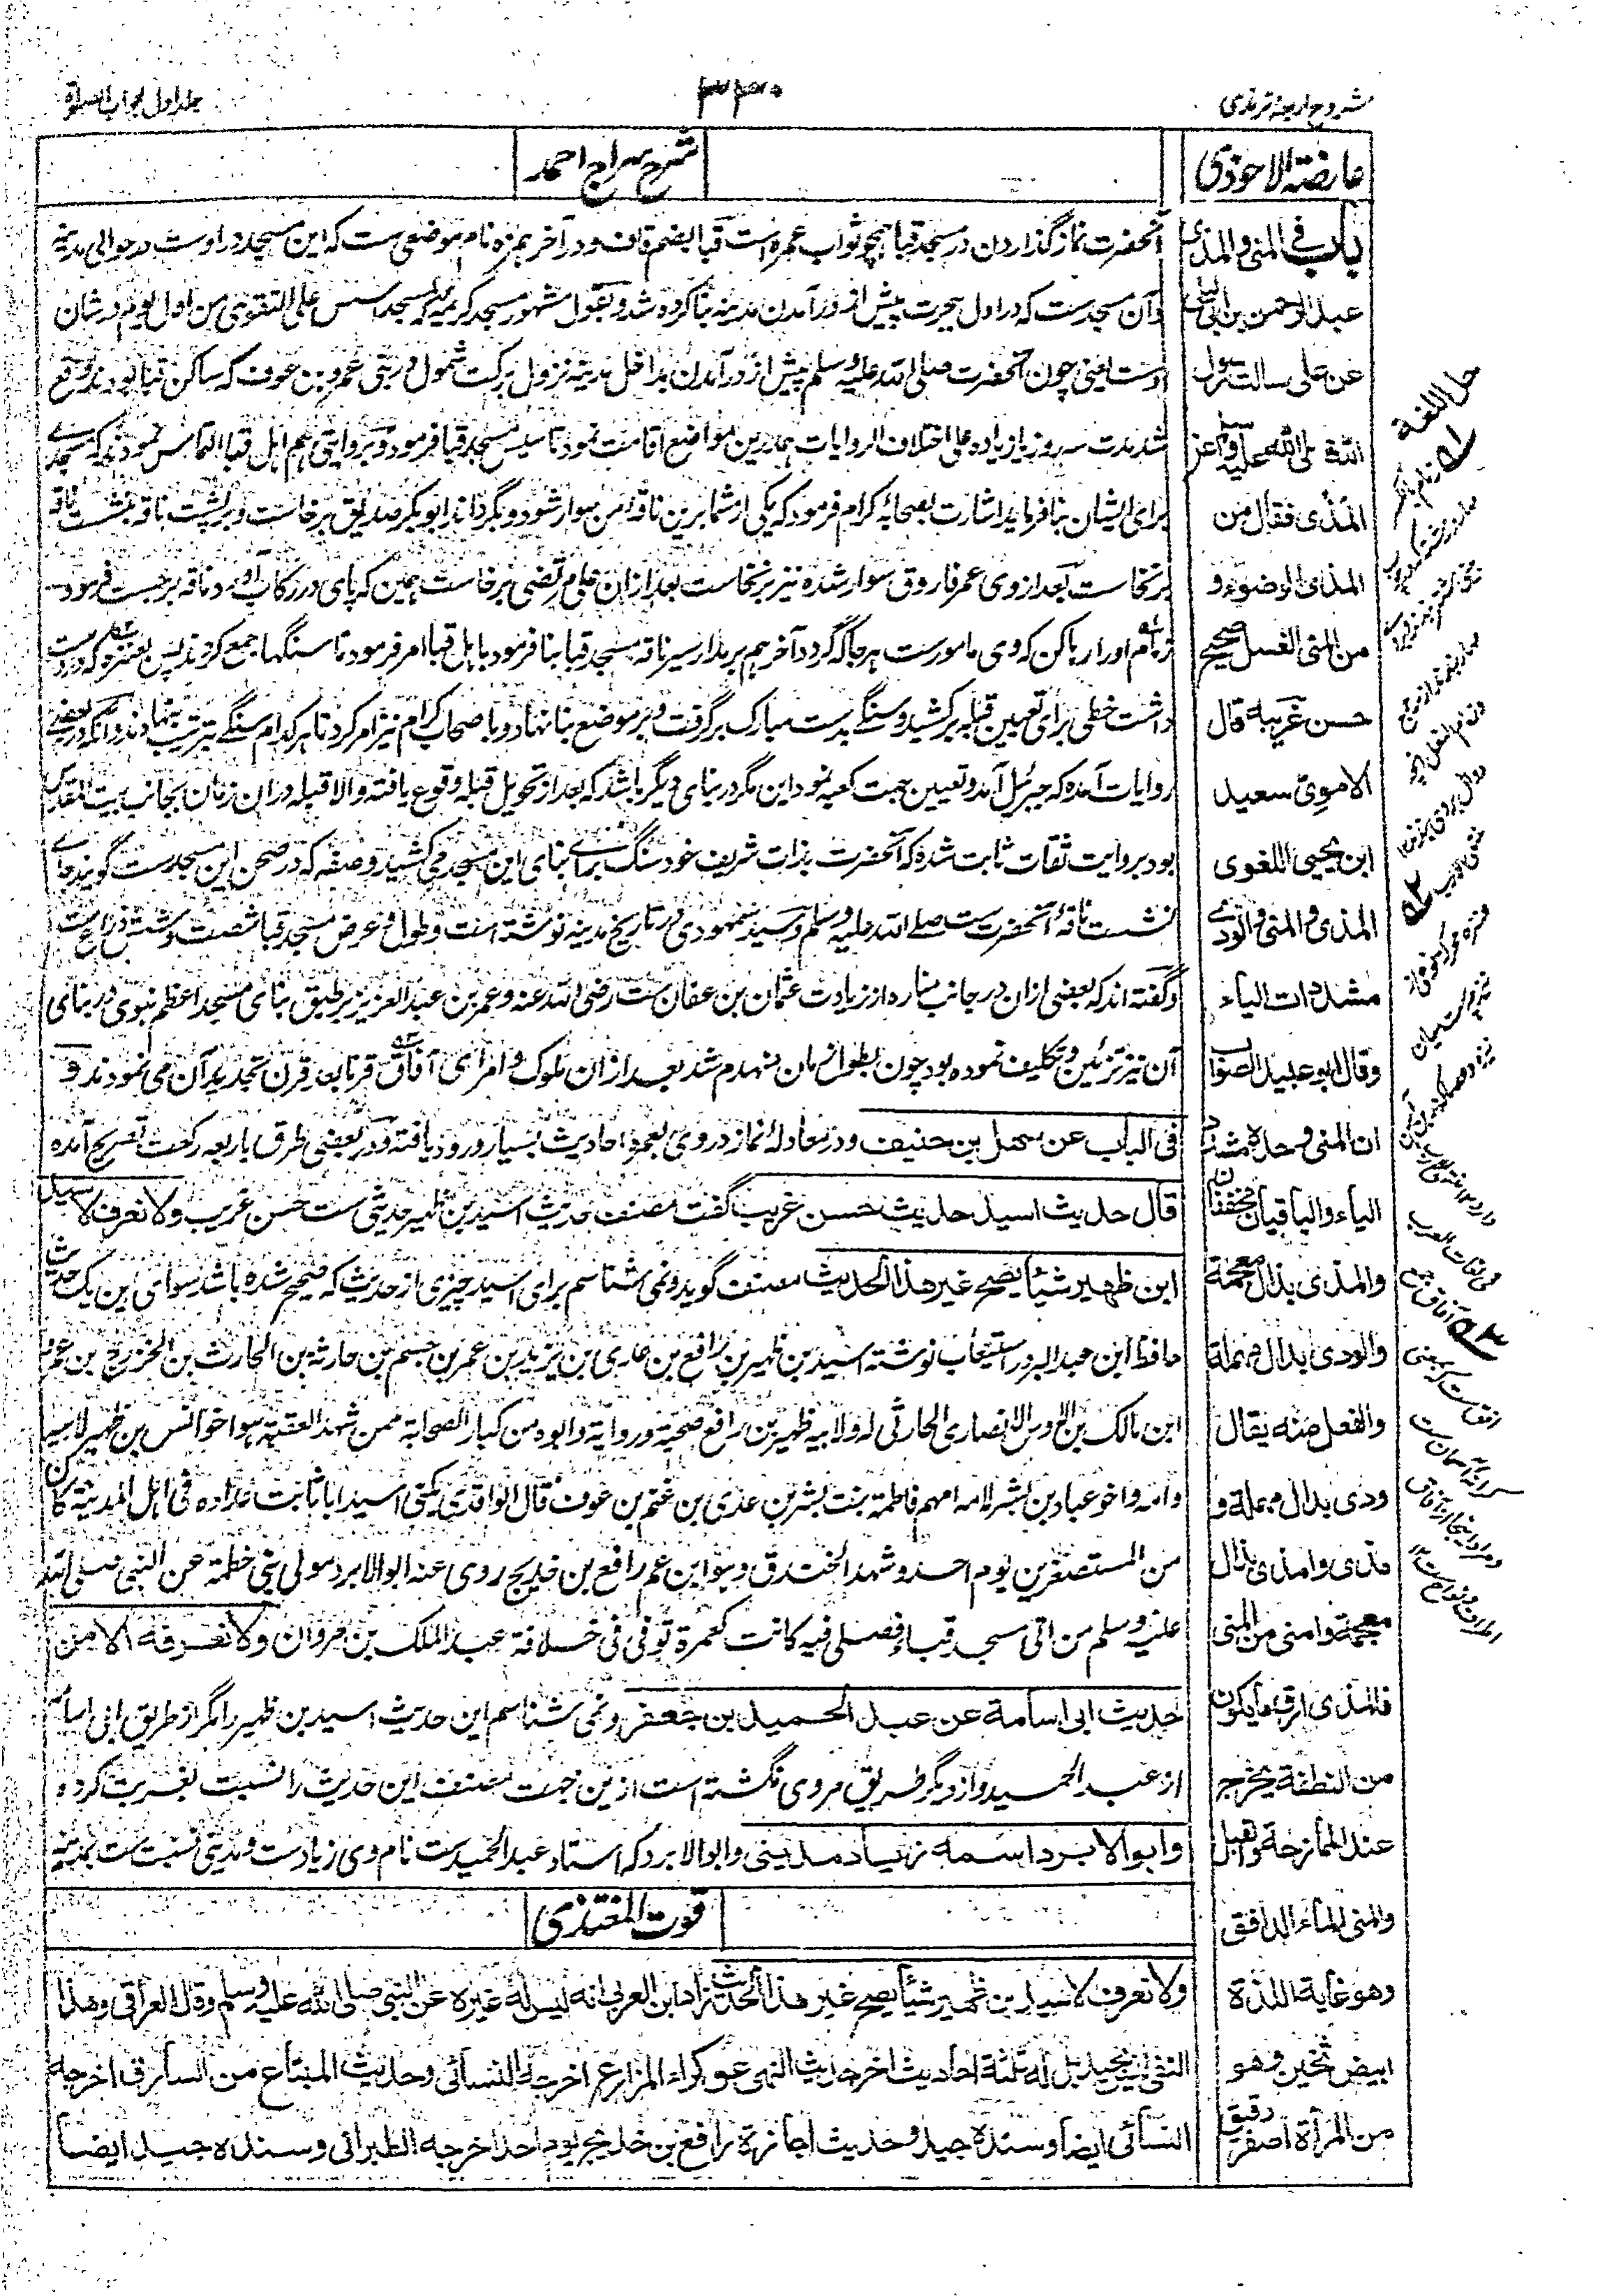 شروح اربعہ ترمذی
۳۳۰
جلد اول ابواب الصلوٰة
عارضة الاحوذی
شرح سراج احمد
باب فی المنی والمذی
عبد الرحمن بن ابی لیلی
عن علی سالت رسول
الله صلی الله علیه وسلم عن
المذی فقال من
المذی الوضوء و
من المنی الغسل صحیح
حسن غریبه قال
الاموی سعید
ابن یحیی اللغوی
المذی والمنی والودی
مشددات الیاء
وقال ابو عبید الصواب
ان المنی وحده مشدد
الیاء والباقیان مخففان
والمذی بذال معجمة
والودی بدال مهملة
والفعل منه یقال
ودی بدال مهملة و
مذی وامذی بذال
معجمة وامنی من المنی
فالمذی ارق مایکون
من النطفة یخرج
عند الممازحة والقبل
والمنی الماء الدافق
وهو غایة اللذة
ابیض ثخین وهو
من المرأة اصفر رقیق
آنحضرت نماز گذاردن در مسجد قبا همچو ثواب عمره است قبا بضم قاف و در آخر همزه نام موضعی ست که این مسجد در اوست در حوالی مدینه
وآن مسجدست که در اول هجرت پیش از در آمدن مدینه بنا کرده شد و بقول مشهور مسجد کریمه لمسجد اسس علی التقوی من اول یوم در شان
اوست یعنی چون آنحضرت صلی الله علیه وسلم پیش از در آمدن بداخل مدینه نزول برکت شمول در بنی عمرو بن عوف که ساکن قبا بودند واقع
شد مدت سه روز یا زیاده علی اختلاف الروایات همدرین مواضع اقامت نمود تاسیس مسجد قبا فرمود و بروایتی هم اهل قبا التماس نمودند که مسجدے
برای ایشان بنا فرماید اشارت بصحابه کرام فرمود که یکی از شما برین ناقه من سوار شود و بگرداند ابوبکر صدیق برخاست و بر پشت ناقه نشست ناقه
برنخاست بعد از وی عمر فاروق سوار شده نیز برنخاست بعد ازان علی مرتضی برخاست همین که پای در رکاب آورد ناقه برجست فرمود
زمام او را رها کن که وی مامورست هر جا که گردد آخر هم بر مدار سیر ناقه مسجد قبا بنا فرمود باهل قبا امر فرمود تا سنگها جمع کردند پس بعنزه که در دست
داشت خطی برای تعیین قبله برکشید و سنگے بدست مبارک برگرفت و بر موضع بنا نهاد و باصحاب کرام نیز امر کرد تا هر کدام سنگے بترتیب بنهادند و آنکه در بعضے
روایات آمده که جبرئیل آمد و تعیین جهت کعبه نمود این مگر در بنای دیگر باشد که بعد از تحویل قبله وقوع یافته والا قبله دران زمان بجانب بیت المقدس
بود بروایت ثقات ثابت شده که آنحضرت بذات شریف خود سنگ براے بنای این مسجد می کشید و صفه که در صحن این مسجدست گویند جاے
نشست ناقهٔ آنحضرت ست صلے الله علیه وسلم و سید سمهودی در تاریخ مدینه نوشته است و طول و عرض مسجد قبا شصت و شش ذراع ست
و گفته اند که بعضی ازان در جانب مناره از زیادت عثمان بن عفان ست رضی الله عنه و عمر بن عبد العزیز بر طبق بنای مسجد اعظم نبوی در بنای
آن نیز تزئین و تکلیف نموده بود چون بطول زمان منهدم شد بعد ازان ملوک و امرای آفاق قرنا بعد قرن تجدید آن می نمودند و
فی الباب عن سهل بن حنیف و در معادلهٔ نماز در وی بعمره احادیث بسیار ورود یافته و در بعضی طرق باربعه رکعت تصریح آمده
قال حدیث اسید حدیث حسن غریب گفت مصنف حدیث اسید بن ظهیر حدیثی ست حسن غریب ولا نعرف لاسید
ابن ظهیر شیئا یصح غیر هذا الحدیث مصنف گوید و نمی شناسم برای اسید چیزی از حدیث که صحیح شده باشد سوای این یک حدیث
حافظ ابن عبد البر در استیعاب نوشته اسید بن ظهیر بن رافع بن عدی بن زید بن عمر بن جشم بن حارثه بن الحارث بن الخزرج بن عمرو
ابن مالک بن الاوس الانصاری الحارثی له ولابیه ظهیر بن رافع صحبة وروایة وابوه من کبار الصحابة ممن شهد العقبة هو اخو انس بن ظهیر لابیه
وامه واخو عباد بن بشر لامه امهم فاطمة بنت بشر بن عدی بن غنم بن عوف قال الواقدی یکنی اسید ابا ثابت عداده فی اهل المدینة کان
من المستصغرین یوم احد وشهد الخندق وهو ابن عم رافع بن خدیج روی عنه ابو الابرد مولی بنی خطمة عن النبی صلی الله
علیه وسلم من اتی مسجد قباء فصلی فیه کانت کعمرة توفی فی خلافة عبد الملک بن مروان ولا نعرفه الا من
حدیث ابی اسامة عن عبد الحمید بن جعفر و نمی شناسم این حدیث اسید بن ظهیر را مگر از طریق ابی اسامه
از عبد الحمید و از دیگر طریق مروی نگشته است ازین جهت مصنف این حدیث را نسبت بغربت کرده
وابو الابرد اسمه زیاد مدینی و ابو الابرد که استاد عبد الحمیدست نام وی زیادست و مدینی نسبت ست بمدینه
قوت المغتذی
ولا نعرف لاسید بن ظهیر شیئا یصح غیر هذا الحدیث زاد ابن العربی انه لیس له غیره عن النبی صلی الله علیه وسلم وقال العراقی وهذا
النفی لیس بجید بل له ثلثة احادیث اخر حدیث النهی عن کراء المزارع اخرجه النسائی وحدیث المبتاع من السارق اخرجه
النسائی ایضا وسنده جید وحدیث اجازة رافع بن خدیج یوم احد اخرجه الطبرانی وسنده جید ایضا
حل اللغة